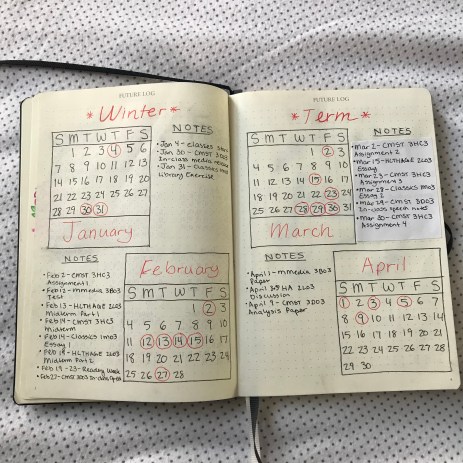 FUTURE LOG
*Winter*
S M T W T F S
1 2 3 4 5 6
7 8 9 10 11 12 13
14 15 16 17 18 19 20
21 22 23 24 25 26 27
28 29 30 31
January
NOTES
•Jan 4 - classes
•Jan 30 - CMST 3D03
In-class media
•Jan 31 - Classics 1M03
Library Exercise
NOTES
•Feb 2 - CMST 3HC3
Assignment 1
•Feb 12 - mmedia 3B03
Test
•Feb 13 - HLTHAGE 2L03
Midterm Part 1
•Feb 14 - CMST 3HC3
Midterm
•Feb 14 - Classics 1M03
Essay 1
•Feb 15 - HLTHAGE 2L03
Midterm Part 2
•Feb 19-23 - Reading Week
•Feb 27 - CMST 3D03 In-class
February
S M T W T F S
1 2 3
4 5 6 7 8 9 10
11 12 13 14 15 16 17
18 19 20 21 22 23 24
25 26 27 28
FUTURE LOG
*Term*
S M T W T F S
1 2 3
4 5 6 7 8 9 10
11 12 13 14 15 16 17
18 19 20 21 22 23 24
25 26 27 28 29 30 31
March
NOTES
•Mar 2 - CMST 3HC3
Assignment 2
•Mar 15 - HLTHAGE 2L03
Essay
•Mar 23 - CMST 3HC3
Assignment 3
•Mar 28 - Classics 1M03
Essay 2
•Mar 29 - CMST 3D03
In-class speech notes
•Mar 30 - CMST 3HC3
Assignment 4
NOTES
•April 1 - mmedia 3B03
Paper
•April HA 2L03
Discussion
•April 9 - CMST 3D03
Analysis Paper
April
S M T W T F S
1 2 3 4 5 6 7
8 9 10 11 12 13 14
15 16 17 18 19 20 21
22 23 24 25 26 27 28
29 30